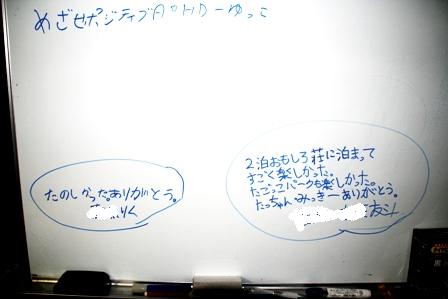 めざせポジティブADHD-ゆっこ
たのしかったありがとう。
りく
2泊おもしろ荘に泊まって
すごく楽しかった。
たごってパークも楽しかった。
たっちゃん・みっきーありがとう。
友斗